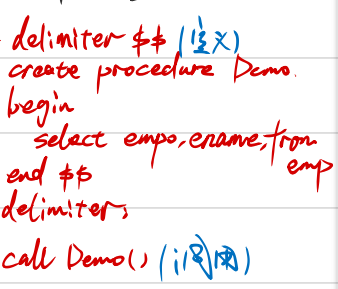 delimiter $$ (定义)
create procedure Demo.
begin
select empo, ename, from
emp
end $$
delimiter;
call Demo() (调用)